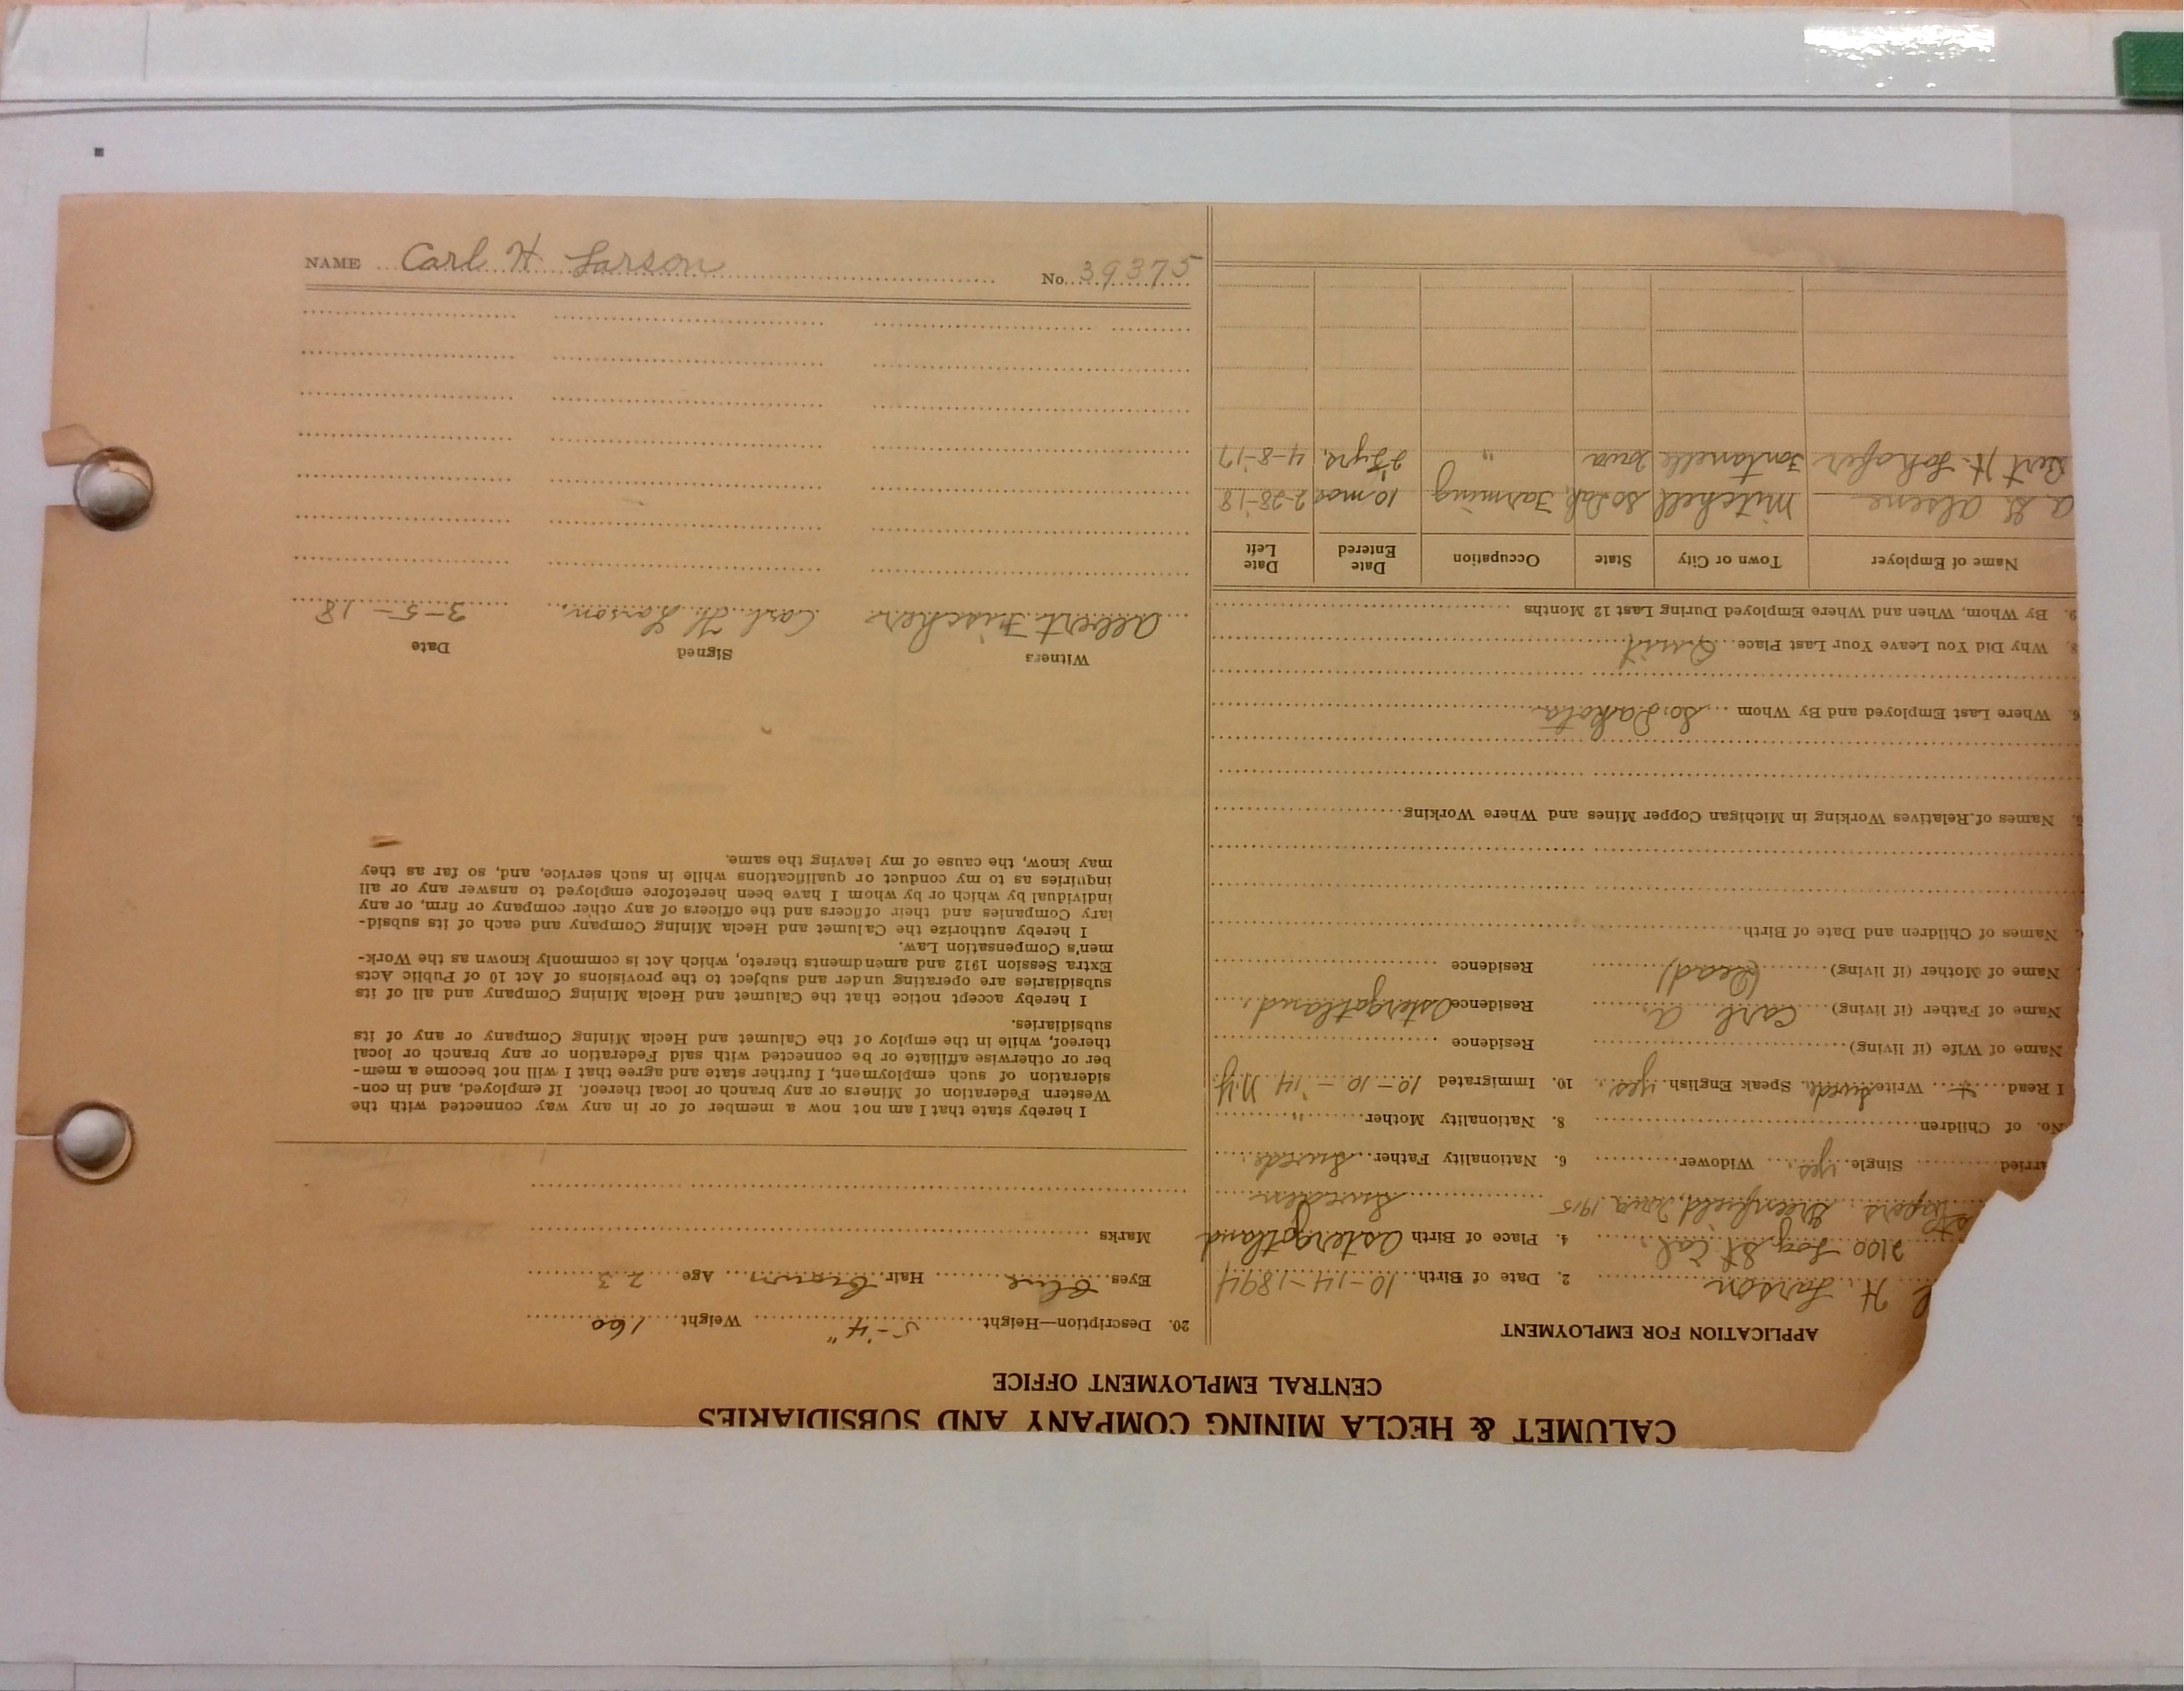 NAME Carl H Larson No. 39375
CALUMET & HECLA MINING COMPANY AND SUBSIDIARIES
CENTRAL EMPLOYMENT OFFICE
APPLICATION FOR EMPLOYMENT
H. Larson 2. Date of Birth 10-14-1894
2100 Log St. Cal. 4. Place of Birth Ostergotland
Papers Greenfield, Iowa 1915 Sweden
arried Single yes Widower 6. Nationality Father Swede
No. of Children 8. Nationality Mother "
I Read Write Swede Speak English yes 10. Immigrated 10-10-14 N.Y.
Name of Wife (if living) Residence
Name of Father (if living) Carl A. Residence Ostergotland
Name of Mother (if living) (Dead) Residence
Names of Children and Date of Birth
Names of Relatives Working in Michigan Copper Mines and Where Working
6. Where Last Employed and By Whom So. Dakota
8. Why Did You Leave Your Last Place Quit
9. By Whom, When and Where Employed During Last 12 Months
Name of Employer Town or City State Occupation Date Entered Date Left
Alsene Mitchell So Dak Farming 10 mos 2-28-18
Bert H. Fontanelle Iowa " 2½ yrs. 4-8-17
20. Description—Height 5-4" Weight 160
Eyes Blue Hair Brown Age 23
Marks
I hereby state that I am not now a member of or in any way connected with the
Western Federation of Miners or any branch or local thereof. If employed, and in con-
sideration of such employment, I further state and agree that I will not become a mem-
ber or otherwise affiliate or be connected with said Federation or any branch or local
thereof, while in the employ of the Calumet and Hecla Mining Company or any of its
subsidiaries.
I hereby accept notice that the Calumet and Hecla Mining Company and all of its
subsidiaries are operating under and subject to the provisions of Act 10 of Public Acts
Extra Session 1912 and amendments thereto, which Act is commonly known as the Work-
men's Compensation Law.
I hereby authorize the Calumet and Hecla Mining Company and each of its subsid-
iary Companies and their officers and the officers of any other company or firm, or any
individual by which or by whom I have been heretofore employed to answer any or all
inquiries as to my conduct or qualifications while in such service, and, so far as they
may know, the cause of my leaving the same.
Witness Signed Date
Albert Fischer Carl H Larson 3-5-18